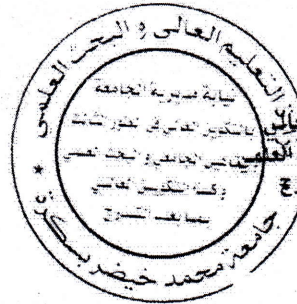 التعليم العالي و البحث العلمي
نيابة مديرية الجامعة
بالتكوين العالي في الطور الثالث
التأهيل الجامعي و البحث العلمي
وكذا التكوين العالي
فيما بعد التدرج
جامعة محمد خيضر بسكرة